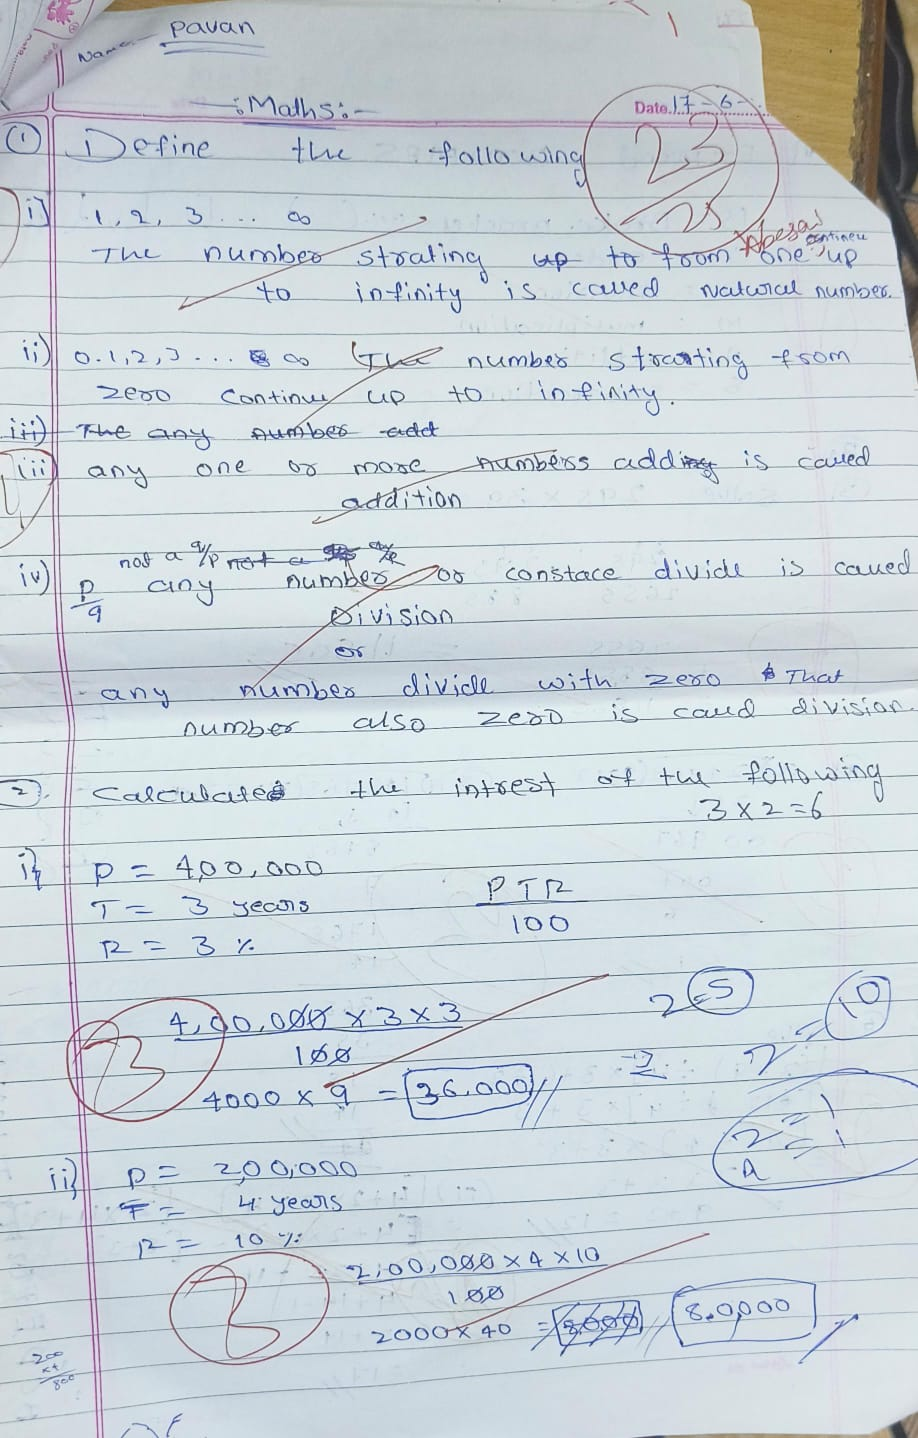 Name:- Pavan
:Maths:-
Date. 17-6-
23/25
① Define the following
i) 1, 2, 3 ... ∞
The number strating up to from one contineu up
to infinity is caued Natural number.
ii) 0.1,2,3 ... ∞ The number strating from
zero continue up to infinity.
iii) The any number add
iii) any one or more numbers adding is caued
addition
not a q/p not a
iv) p/q any number or constace divide is caued
Division
or
any number divide with zero That
number also zero is caud division.
2. Calculate the intrest of the following
3 x 2 = 6
i} P = 4,00,000
T = 3 years
PTR
R = 3 %
100
4,00,000 x 3 x 3
100
3
4000 x 9 = 36.000 //
2 = 5
2 = 10
2 = 1
ii} P = 2,00,000
T = 4 years
R = 10 %
2,00,000 x 4 x 10
100
3
2000 x 40 = 8,000 // 8.0,000
200
x4
800